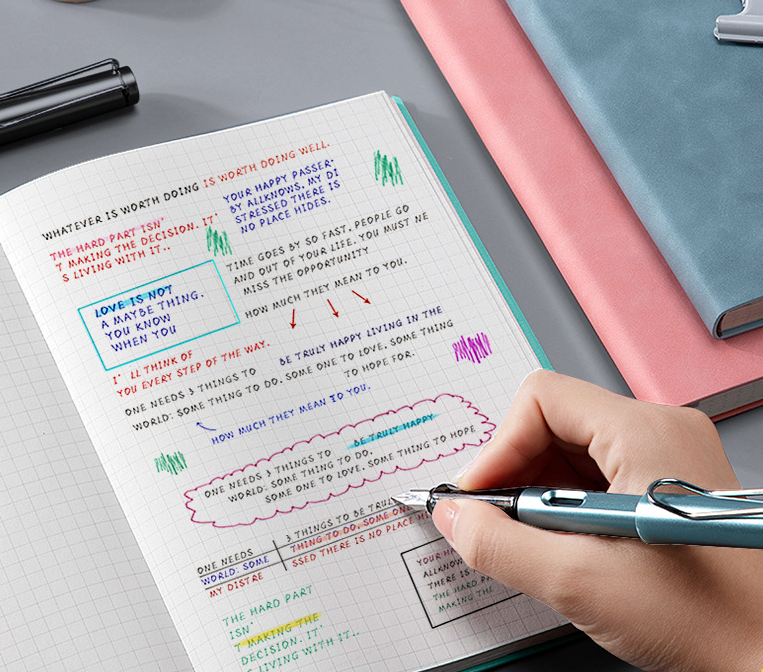 WHATEVER IS WORTH DOING IS WORTH DOING WELL.
THE HARD PART ISN'
T MAKING THE DECISION. IT'
S LIVING WITH IT..
YOUR HAPPY PASSER;
BY ALLKNOWS, MY DI
STRESSED THERE IS
NO PLACE HIDES.
TIME GOES BY SO FAST, PEOPLE GO
AND OUT OF YOUR LIFE. YOU MUST NE
MISS THE OPPORTUNITY
HOW MUCH THEY MEAN TO YOU.
LOVE IS NOT
A MAYBE THING.
YOU KNOW
WHEN YOU
I' LL THINK OF
YOU EVERY STEP OF THE WAY.
BE TRULY HAPPY LIVING IN THE
ONE NEEDS 3 THINGS TO
WORLD: SOME THING TO DO, SOME ONE TO LOVE, SOME THING
TO HOPE FOR.
HOW MUCH THEY MEAN TO YOU.
ONE NEEDS 3 THINGS TO BE TRULY HAPPY
WORLD: SOME THING TO DO,
SOME ONE TO LOVE, SOME THING TO HOPE
ONE NEEDS 3 THINGS TO BE TRULY
WORLD: SOME THING TO DO, SOME ONE
MY DISTRE SSED THERE IS NO PLACE HI
YOUR HA
ALLKNOW
THERE IS
THE HARD P
MAKING THE
THE HARD PART
ISN'
T MAKING THE
DECISION. IT'
S LIVING WITH IT..